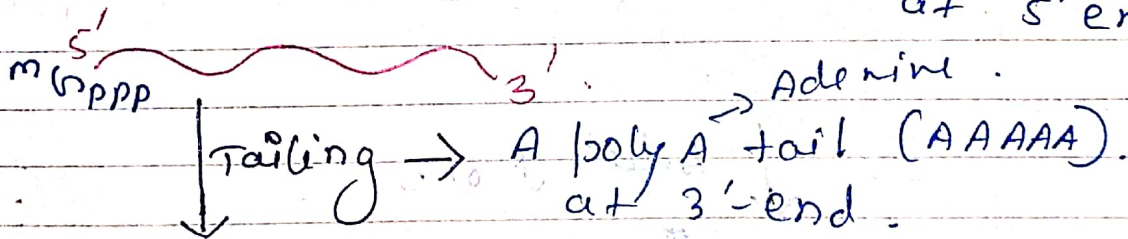 at 5' er
5'
mGppp
3'
Adenine.
Tailing → A poly A tail (AAAAA).
at 3'-end.